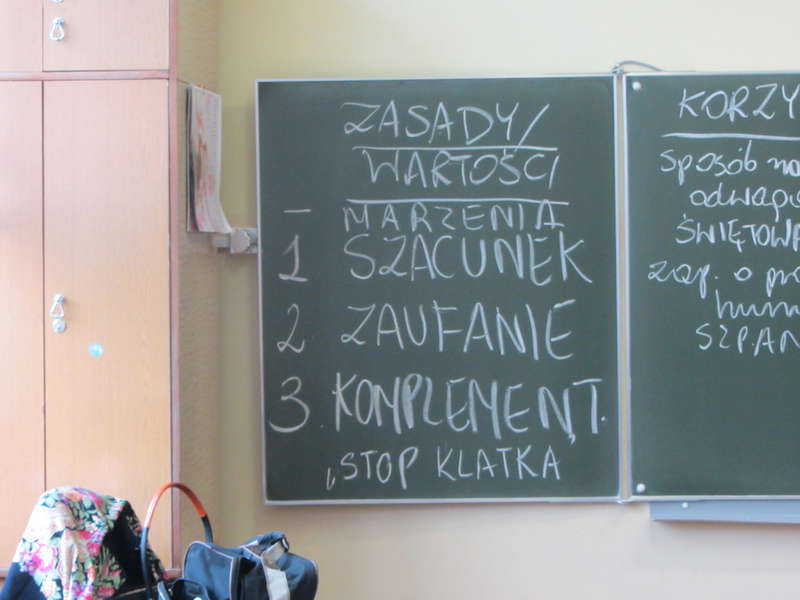 ZASADY/
WARTOŚCI
– MARZENIA
1 SZACUNEK
2 ZAUFANIE
3. KOMPLEMENT.
STOP KLATKA
KORZY
sposób na
ŚWIĘTOWA
zap. o pr